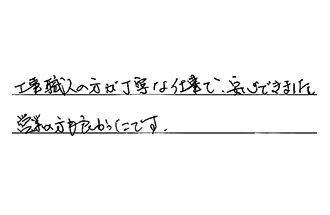 工事職人の方が丁寧な仕事で、安心できました。
営業の方も良かったです。